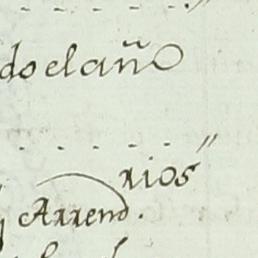 do el año
rios
y Arrend.